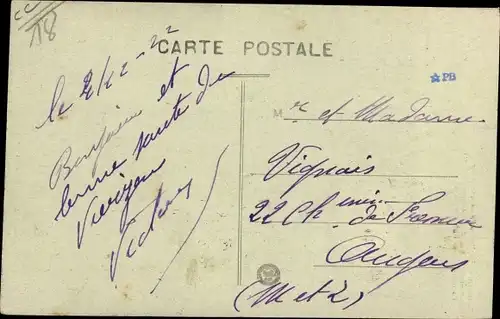 18
CARTE POSTALE
PB
le 2/12-22
Bonjour et
bonne santé de
Victor
Mr et Madame
Vignais
22 Ch min de
Angers
(M et L)